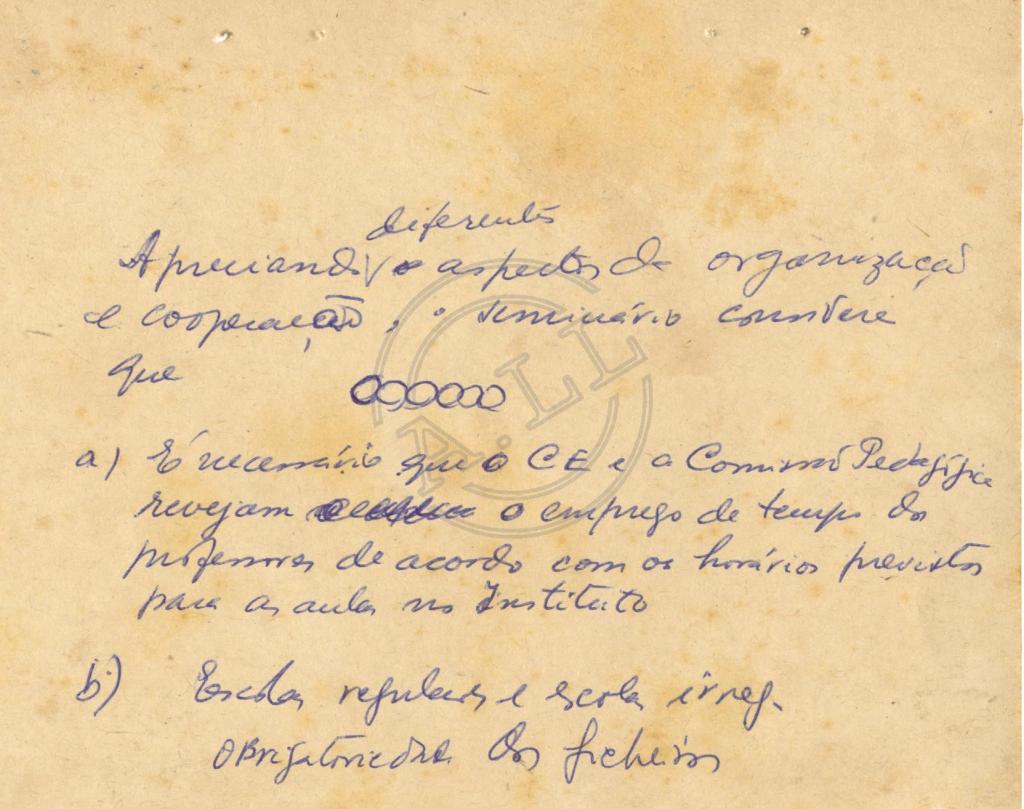 diferentes
Apreciando aspectos da organização
e cooperação, o seminário considera
que
a) É necessário que o CE e a Comissão Pedagógica
revejam o emprego de tempo dos
professores de acordo com os horários previstos
para as aulas no Instituto
b) Escolas regulares e escolas irreg.
Obrigatoriedade dos ficheiros
A.LL